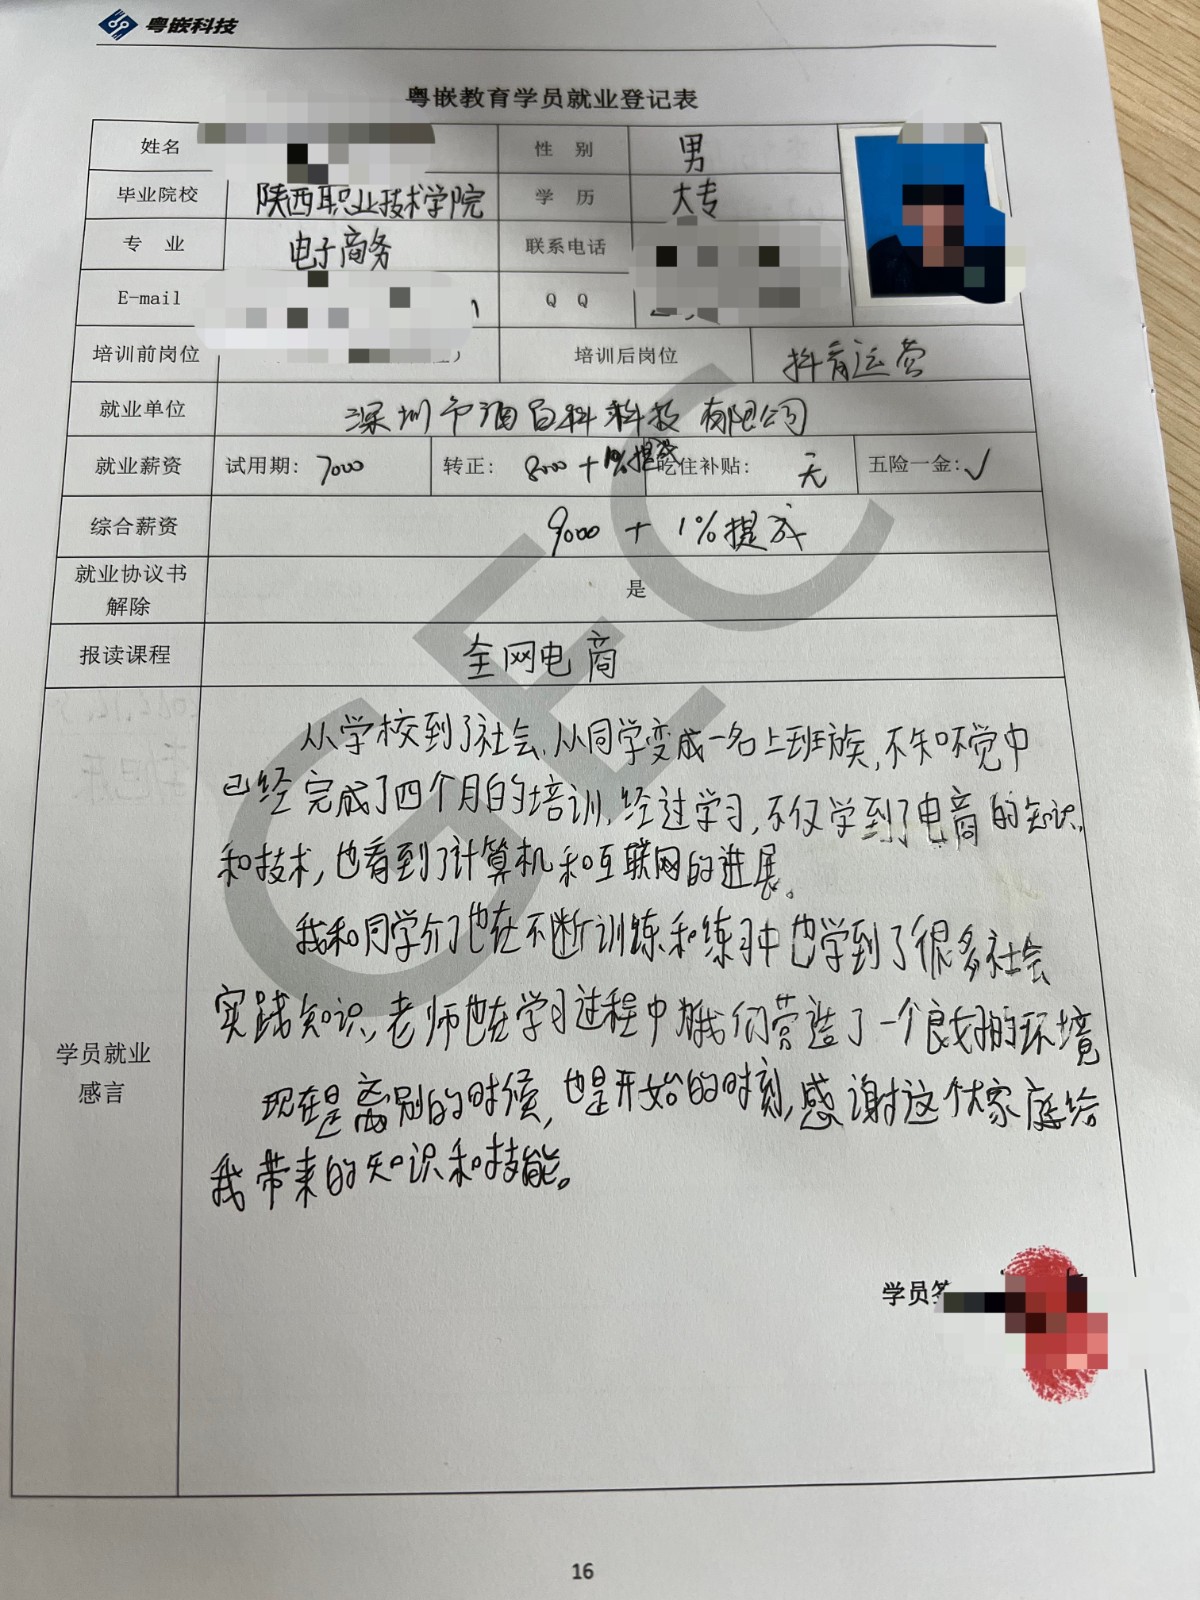 粤嵌科技
粤嵌教育学员就业登记表
姓名 性 别 男
毕业院校 陕西职业技术学院 学 历 大专
专 业 电子商务 联系电话
E-mail Q Q
培训前岗位 培训后岗位 抖音运营
就业单位 深圳市酒百科科技有限公司
就业薪资 试用期：7000 转正：8000+1%提成 吃住补贴：无 五险一金：√
综合薪资 9000 + 1%提成
就业协议书
解除 是
报读课程 全网电商
GEC
学员就业
感言
从学校到了社会，从同学变成一名上班族，不知不觉中
已经完成了四个月的培训，经过学习，不仅学到了电商的知识
和技术，也看到了计算机和互联网的进展。
我和同学们也在不断训练和练习中也学到了很多社会
实践知识，老师也在学习过程中为我们营造了一个良好的环境
现在是离别的时候，也是开始的时刻，感谢这个大家庭给
我带来的知识和技能。
学员签
16